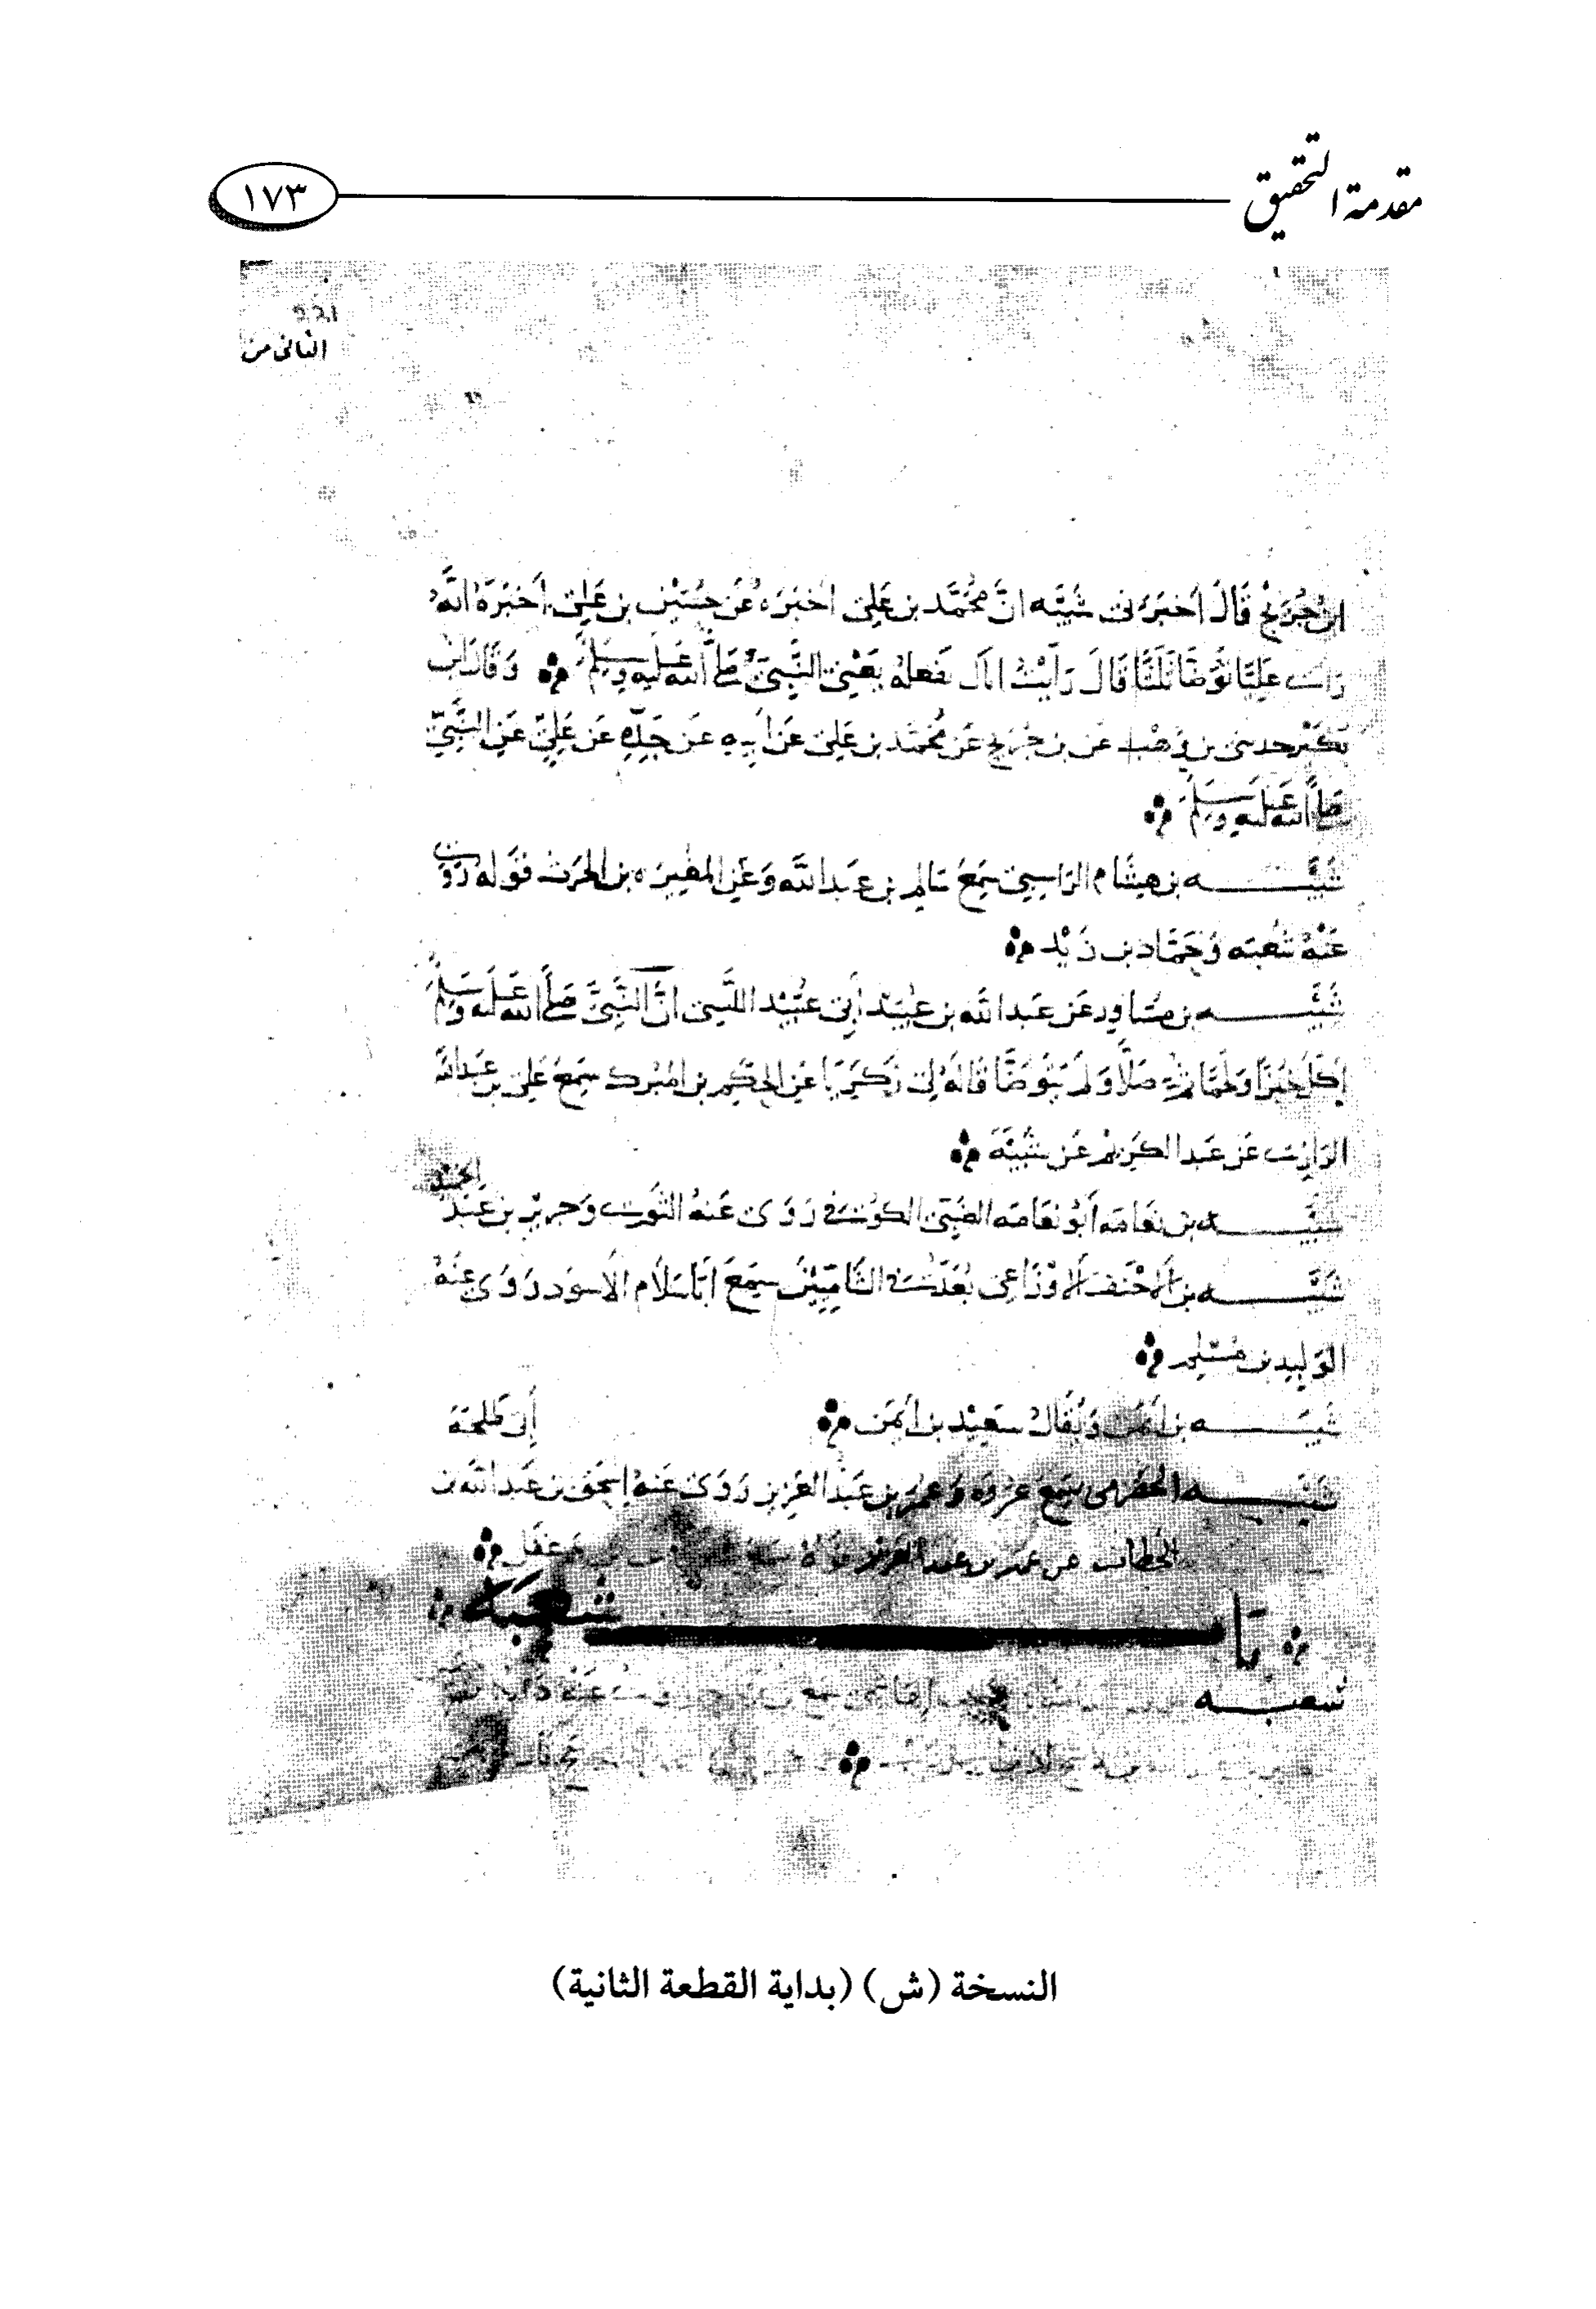 مقدمة التحقيق
١٧٣
الثاني من
ابن جريج قال اخبرني شيبه ان محمد بن علي اخبره عن حسين بن علي اخبره انه
رايت عليا توضا ثلثا قال رايت اباك فعله يعني النبي صلى الله عليه وسلم وقال ابن
بكير حدثني بن وهب عن بن جريج عن محمد بن علي عن ابيه عن جده عن علي عن النبي
صلى الله عليه وسلم
شيبه بن هشام الراسبي سمع سالم بن عبد الله وعن المغيره بن الحرث قوله روى
عنه شعبه وحماد بن زيد
شيبه بن مساور عن عبد الله بن عبيد ابي عبيد الليثي ان النبي صلى الله عليه وسلم
اكل خبزا ولحما ثم صلا ولم يتوضا قاله لي زكريا عن الحكيم بن المبرك سمع علي بن عبد الله
الرازي عن عبد الكريم عن شيبة
شيبه بن نعامه ابو نعامه الضبي الكوفي روى عنه الثوري وجرير بن عبد الحميد
شيبه بن الاحنف الاوزاعي يعد في الشاميين سمع ابا سلام الاسود روى عنه
الوليد بن مسلم
شيبه بن ايمن ويقال سعيد بن ايمن
شيبه الحضرمي سمع عروه وعمر بن عبد العزيز روى عنه اسحق بن عبد الله بن ابي طلحة
الخطاب عن عمر بن عبد العزيز
باب شعبة
شعبه
النسخة (ش) (بداية القطعة الثانية)